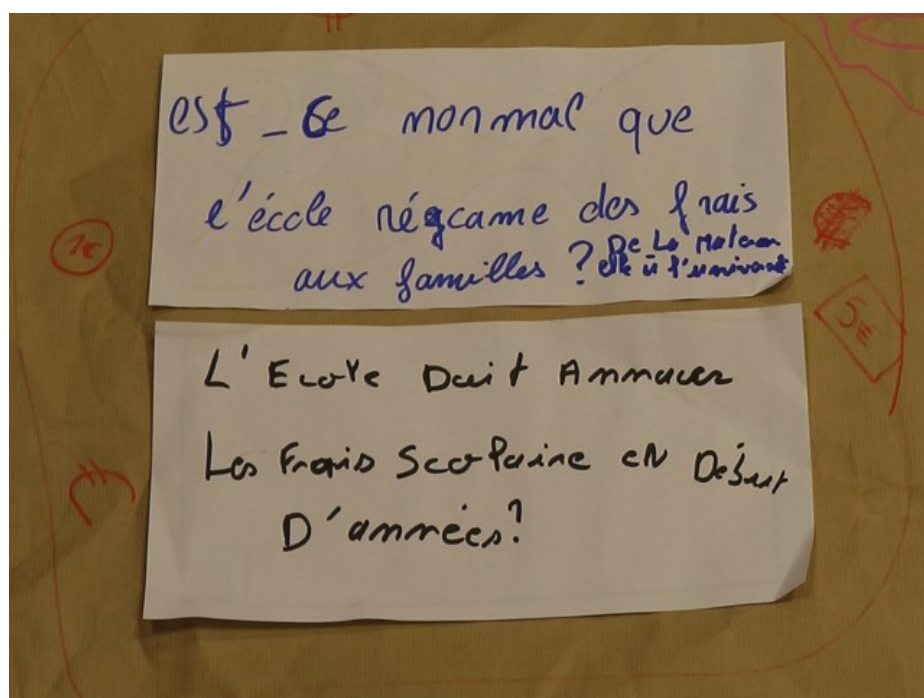 est-ce normal que
l'école réclame des frais
aux familles ? De La Matern
elle à l'universit
1€
5€
L'Ecole Doit Annoncer
Les Frais Scolaire en Début
D'années?